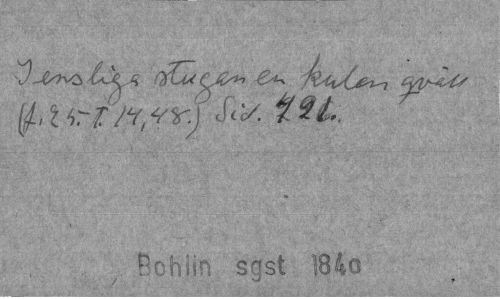 I ensliga stugan en kulen qväll
(f. 25. T. 14,48.) Sid. 721.
Bohlin sgst 1840